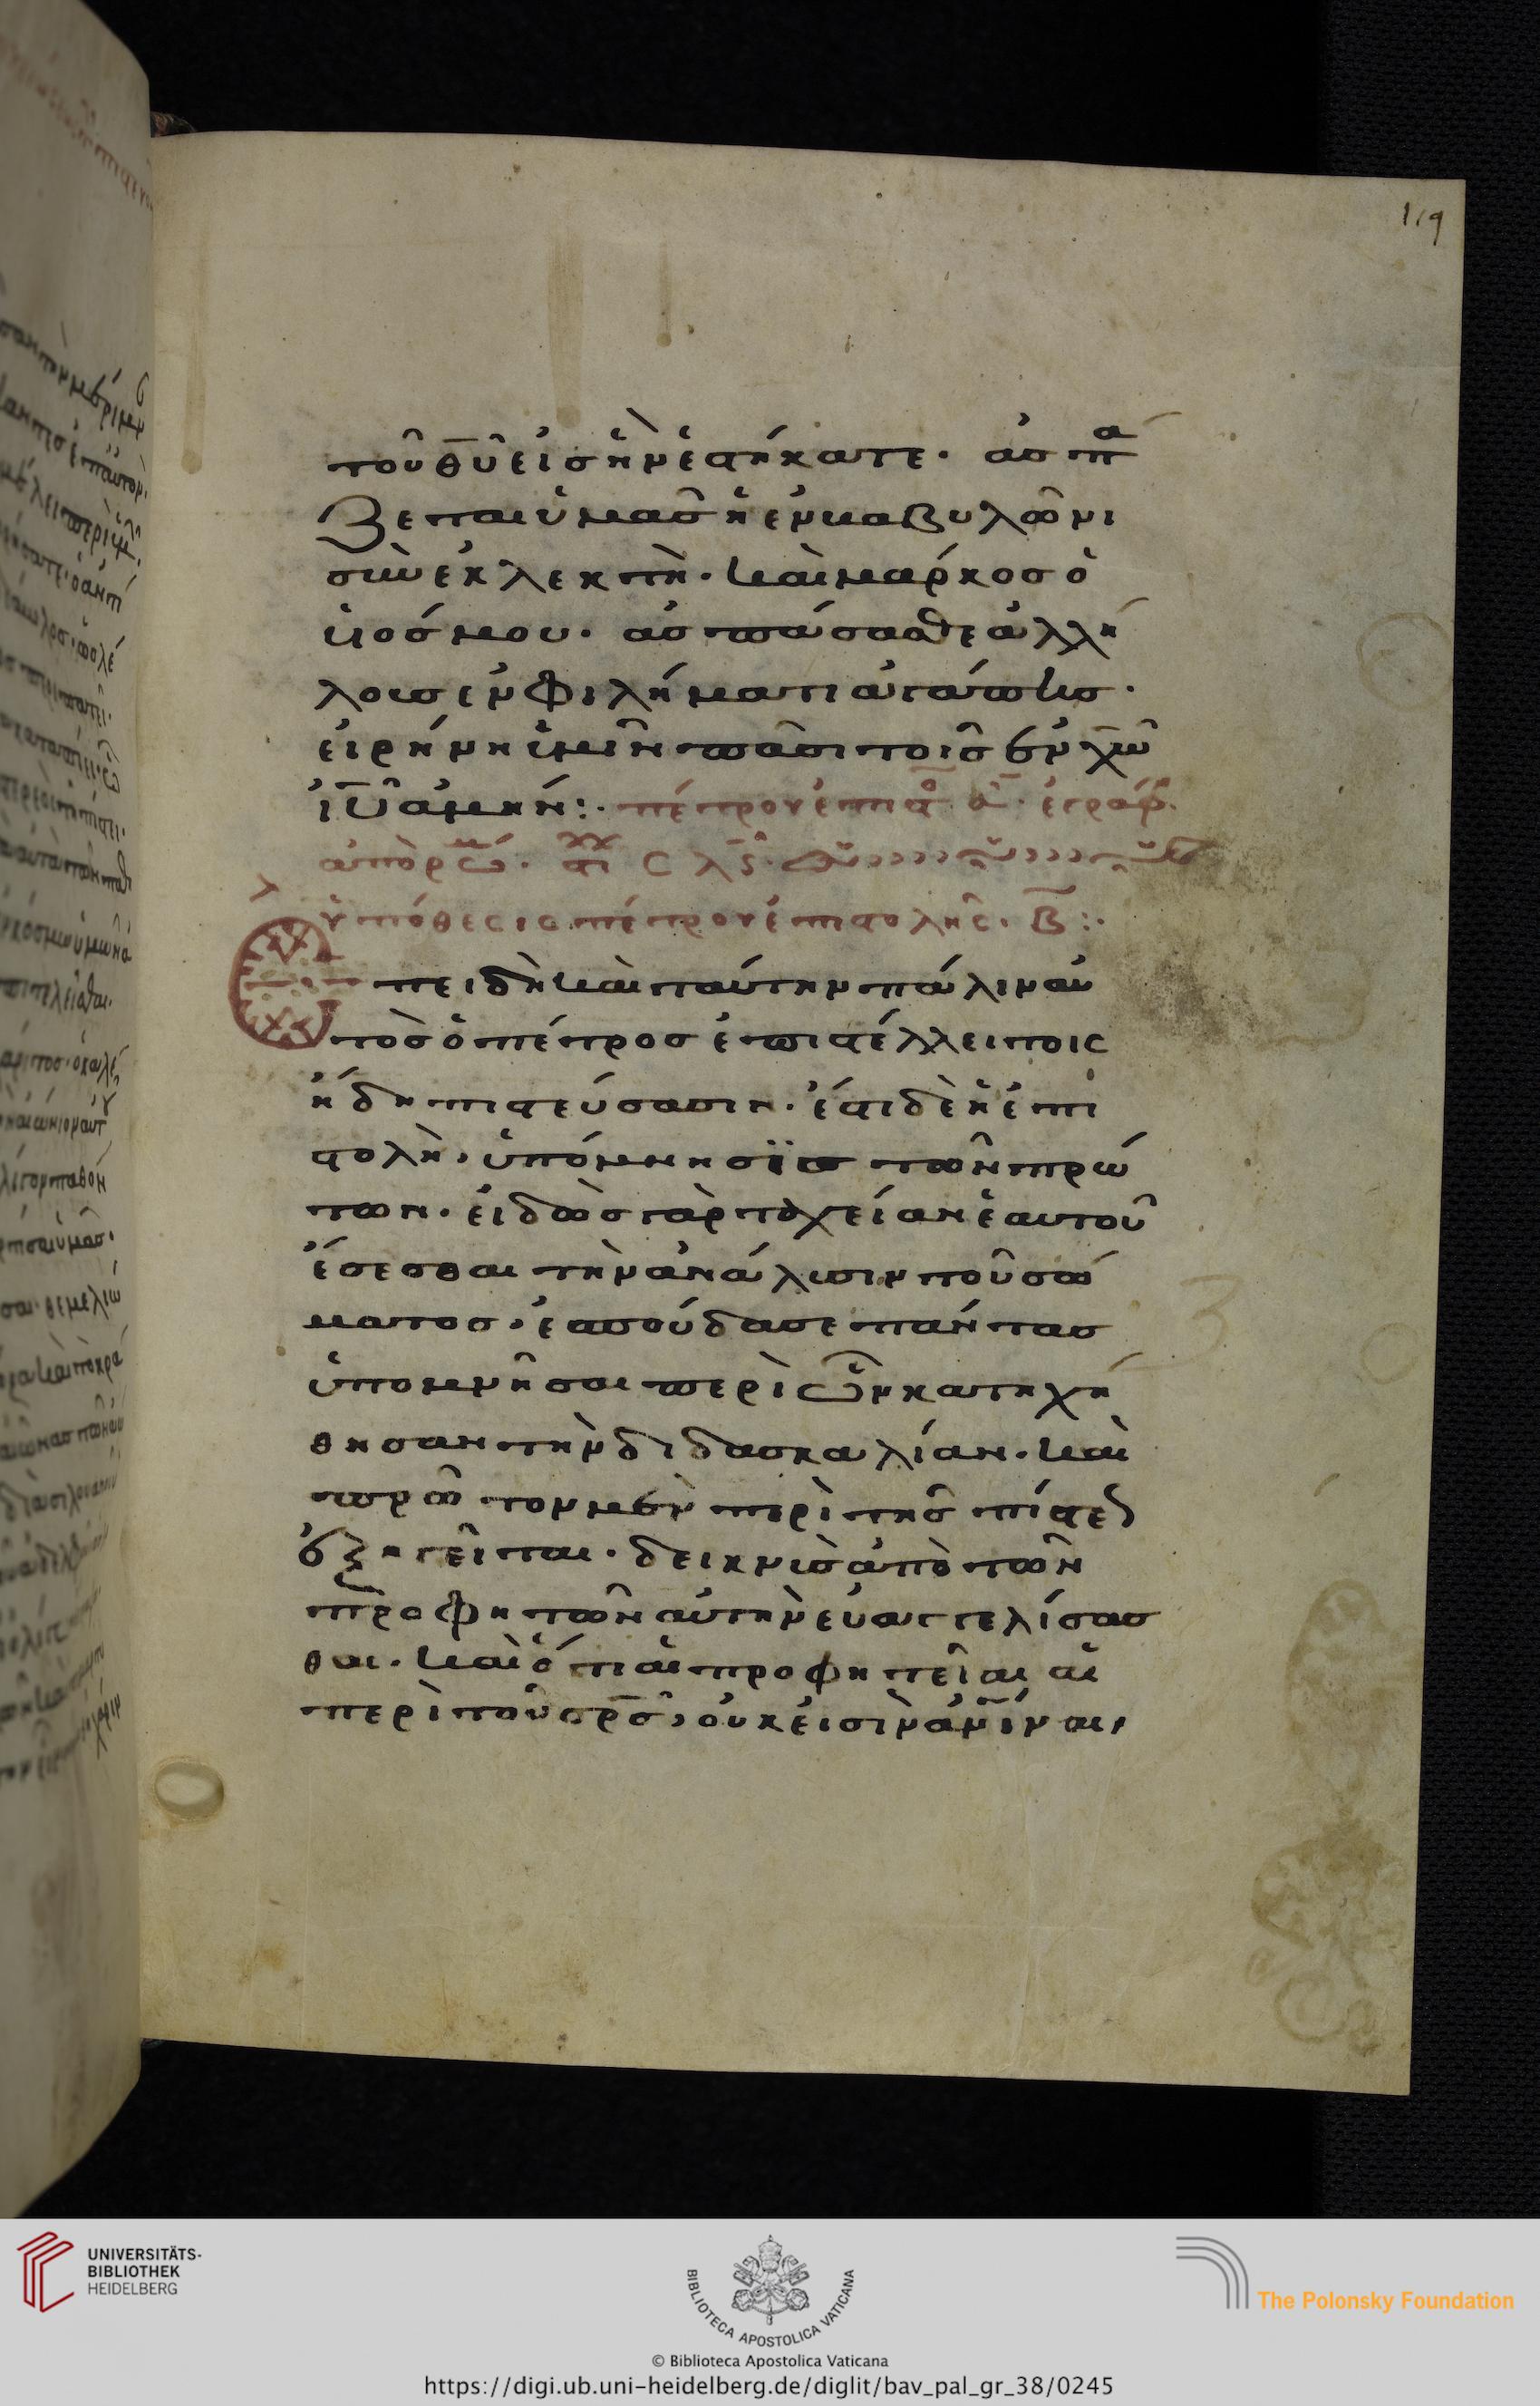 119
τοῦ θῦ εἰς ἣν ἑστήκατε· ἀσπά
ζεται ὑμᾶς ἡ ἐν βαβυλῶνι
συνεκλεκτὴ· καὶ μάρκος ὁ
υἱός μου· ἀσπάσασθε ἀλλή
λους ἐν φιλήματι ἀγάπης·
εἰρήνη ὑμῖν πᾶσι τοῖς ἐν χῶ
ἰῦ ἀμήν:· πέτρου ἐπιστο α· ἐγράφ
ἀπὸ ῥώμ· στι ϲλϛ·
ὑπόθεσις πέτρου ἐπιστολῆς· β:·
Ἐπειδὴ καὶ ταύτην πάλιν αὐ
τὸς ὁ πέτρος ἐπιστέλλει τοῖς
ἤδη πιστεύσασιν· ἔστι δὲ ἡ ἐπι
στολὴ, ὑπόμνησϊς τῶν πρώ
των· εἰδὼς γὰρ ταχεῖαν ἑαυτοῦ
ἔσεσθαι τὴν ἀνάλυσιν τοῦ σώ
ματος, ἐσπούδασε πάντας
ὑπομνῆσαι περὶ ὧν κατηχή
θησαν τὴν διδασκαλίαν· καὶ
πρῶτον μὲν περὶ τῆς πίστεως
ἐξηγεῖται· δεικνὺς ἀπὸ τῶν
προφητῶν αὐτὴν εὐαγγελίσασ
θαι· καὶ ὅτι αἱ προφητεῖαι αἱ
περὶ τοῦ σρς, οὐκ εἰσὶν ἀνίναι,
UNIVERSITÄTS-
BIBLIOTHEK
HEIDELBERG
BIBLIOTECA APOSTOLICA VATICANA
The Polonsky Foundation
© Biblioteca Apostolica Vaticana
https://digi.ub.uni-heidelberg.de/diglit/bav_pal_gr_38/0245